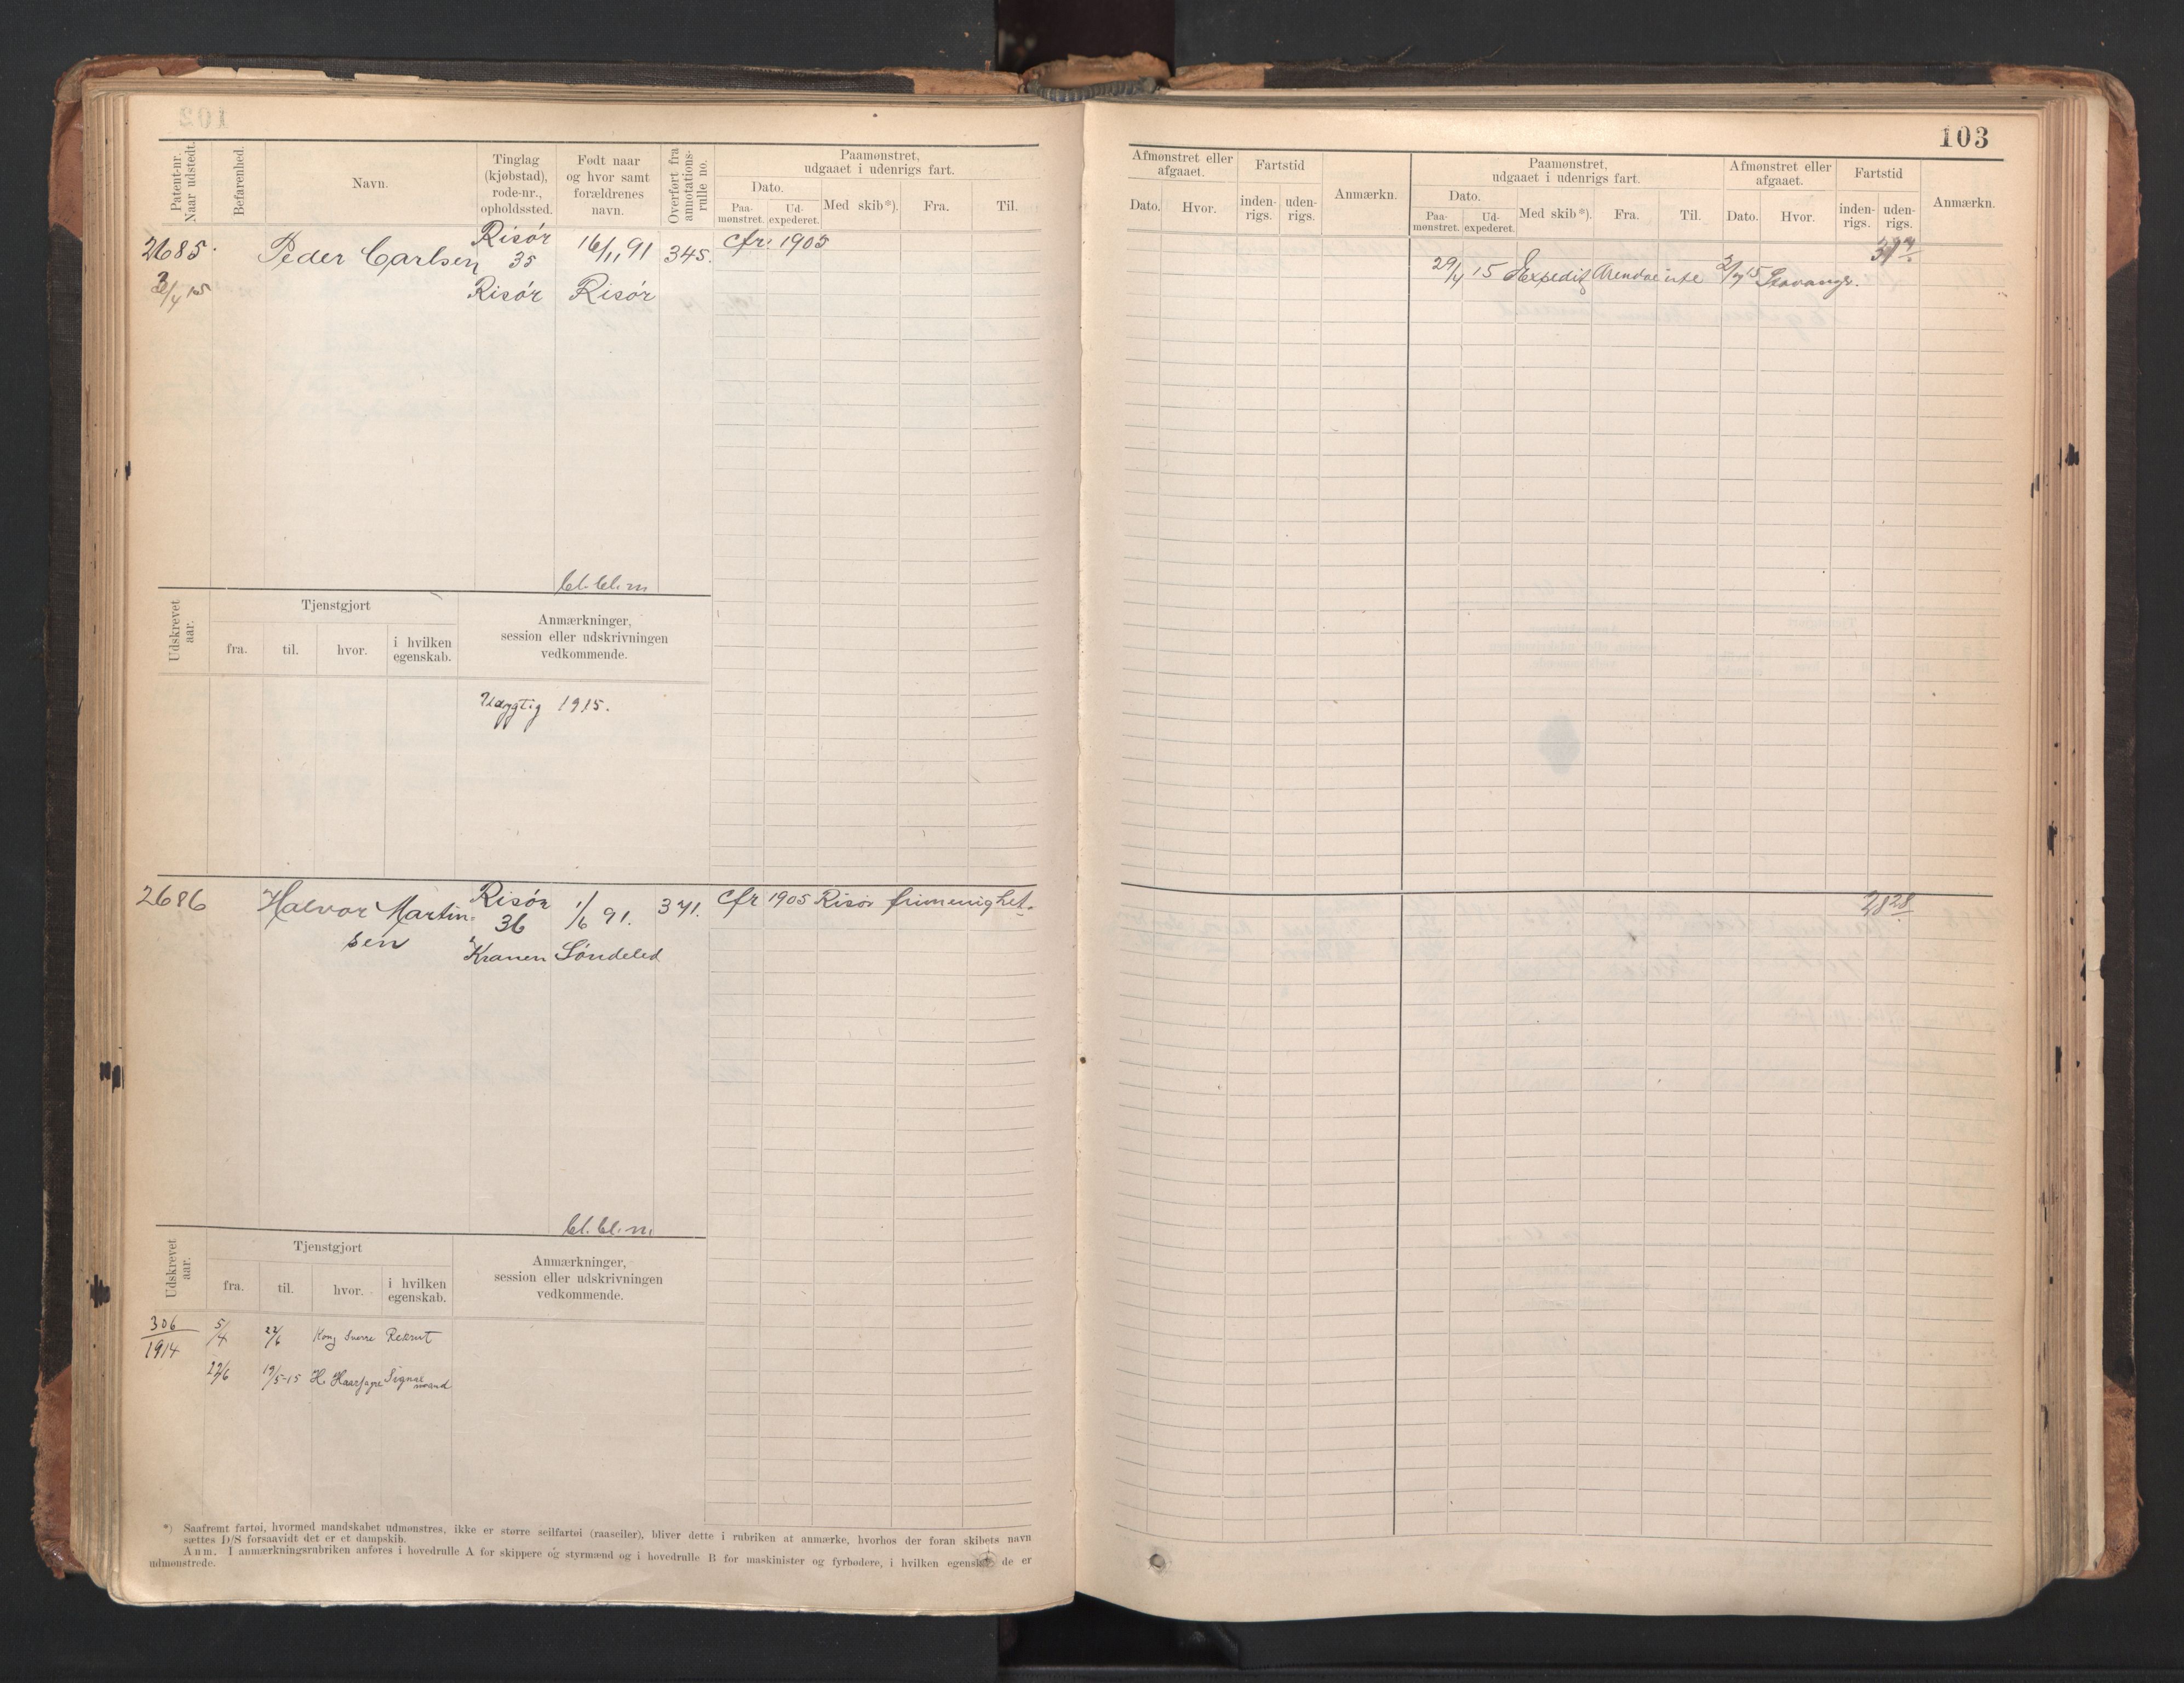 103
Patent-nr. Naar udstedt.
Befarenhed.
Navn.
Tinglag (kjøbstad), rode-nr., opholdssted.
Født naar og hvor samt forældrenes navn.
Overført fra annotationsrulle no.
Paamønstret, udgaaet i udenrigs fart.
Dato.
Paamønstret.
Udexpederet.
Med skib*).
Fra.
Til.
Afmønstret eller afgaaet.
Dato.
Hvor.
Fartstid
indenrigs.
udenrigs.
Anmærkn.
Paamønstret, udgaaet i udenrigs fart.
Dato.
Paamønstret.
Udexpederet.
Med skib*).
Fra.
Til.
Afmønstret eller afgaaet.
Dato.
Hvor.
Fartstid
indenrigs.
udenrigs.
Anmærkn.
2685. Peder Carlsen Risør 16/11 91 345. cfr. 1905
35
Risør Risør
29/4 15 Expedit 2/7 15
cl. cl. m
Udskrevet aar.
Tjenstgjort
fra.
til.
hvor.
i hvilken egenskab.
Anmærkninger, session eller udskrivningen vedkommende.
Udygtig 1915.
2686 Halvor Martin= Risør 1/6 91. 371. cfr 1905 Risør frimenighet.
sen 36
Kranen Søndeled
28 28
cl. cl. m.
Udskrevet aar.
Tjenstgjort
fra.
til.
hvor.
i hvilken egenskab.
Anmærkninger, session eller udskrivningen vedkommende.
306 5/4 22/6 Kong Sverre Rekrut
1914
19/5-15 H. Haarfagre Signal
mand
*) Saafremt fartøi, hvormed mandskabet udmønstres, ikke er større seilfartøi (raaseiler), bliver dette i rubriken at anmærke, hvorhos der foran skibets navn
sættes D/S forsaavidt det er et dampskib.
Anm. I anmærkningsrubriken anføres i hovedrulle A for skippere og styrmænd og i hovedrulle B for maskinister og fyrbødere, i hvilken egenskab de er
udmønstrede.